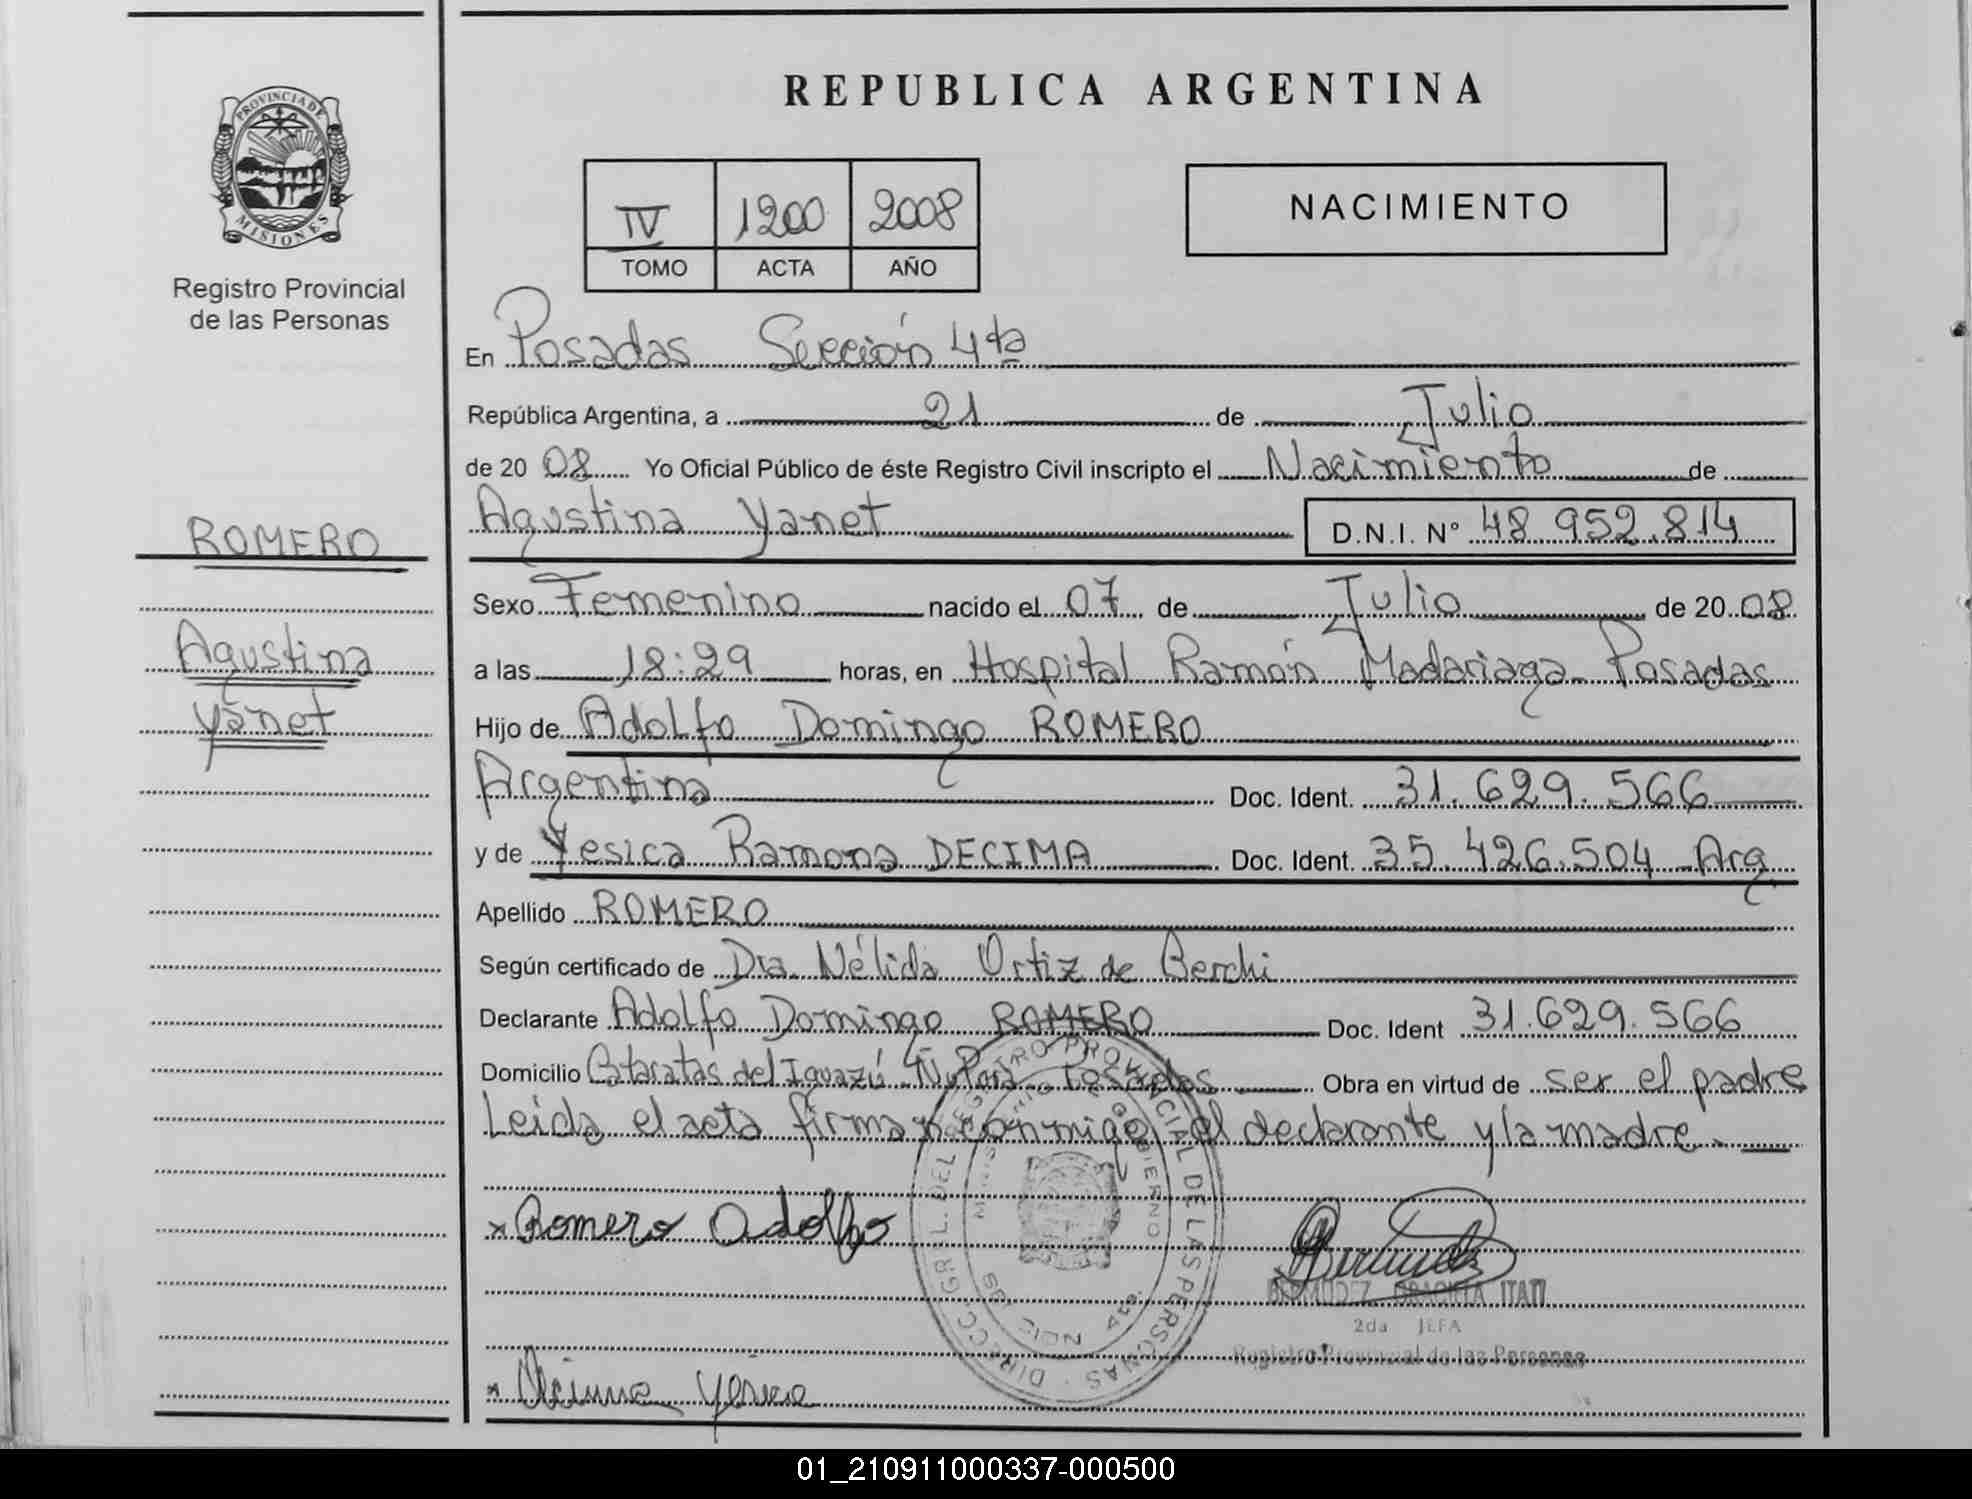 PROVINCIA DE
MISIONES
Registro Provincial
de las Personas
ROMERO
Agustina
Yanet
REPUBLICA ARGENTINA
IV 1200 2008
TOMO ACTA AÑO
NACIMIENTO
En Posadas Sección 4ta
República Argentina, a 21 de Julio
de 20 08 Yo Oficial Público de éste Registro Civil inscripto el Nacimiento de
Agustina Yanet D.N.I. N° 48 952.814
Sexo Femenino nacido el 07 de Julio de 20 08
a las 18:29 horas, en Hospital Ramón Madariaga Posadas
Hijo de Adolfo Domingo ROMERO
Argentina Doc. Ident. 31.629.566
y de Yesica Ramona DECIMA Doc. Ident. 35.426.504 Arg
Apellido ROMERO
Según certificado de Dra. Nélida Ortiz de Berchi
Declarante Adolfo Domingo ROMERO Doc. Ident 31.629.566
Domicilio Cataratas del Iguazú Posadas Obra en virtud de ser el padre
Leida el acta firman conmigo el declarante y la madre.
x Romero Adolfo
DIRECC. GRL. DEL REGISTRO PROVINCIAL DE LAS PERSONAS
MINISTERIO DE GOBIERNO
BERMUDEZ, GRACIELA ITATI
2da JEFA
Registro Provincial de las Personas
x Decima Yesica
01_210911000337-000500